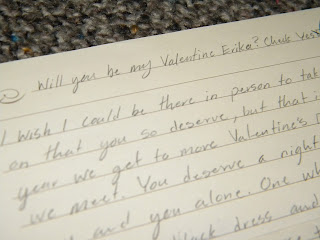 Will you be my Valentine Erika? Check Yes
I wish I could be there in person to tak
on that you so deserve, but that i
year we get to more Valentine's D
we meet. You deserve a night
and you alone. One wh
black dress and